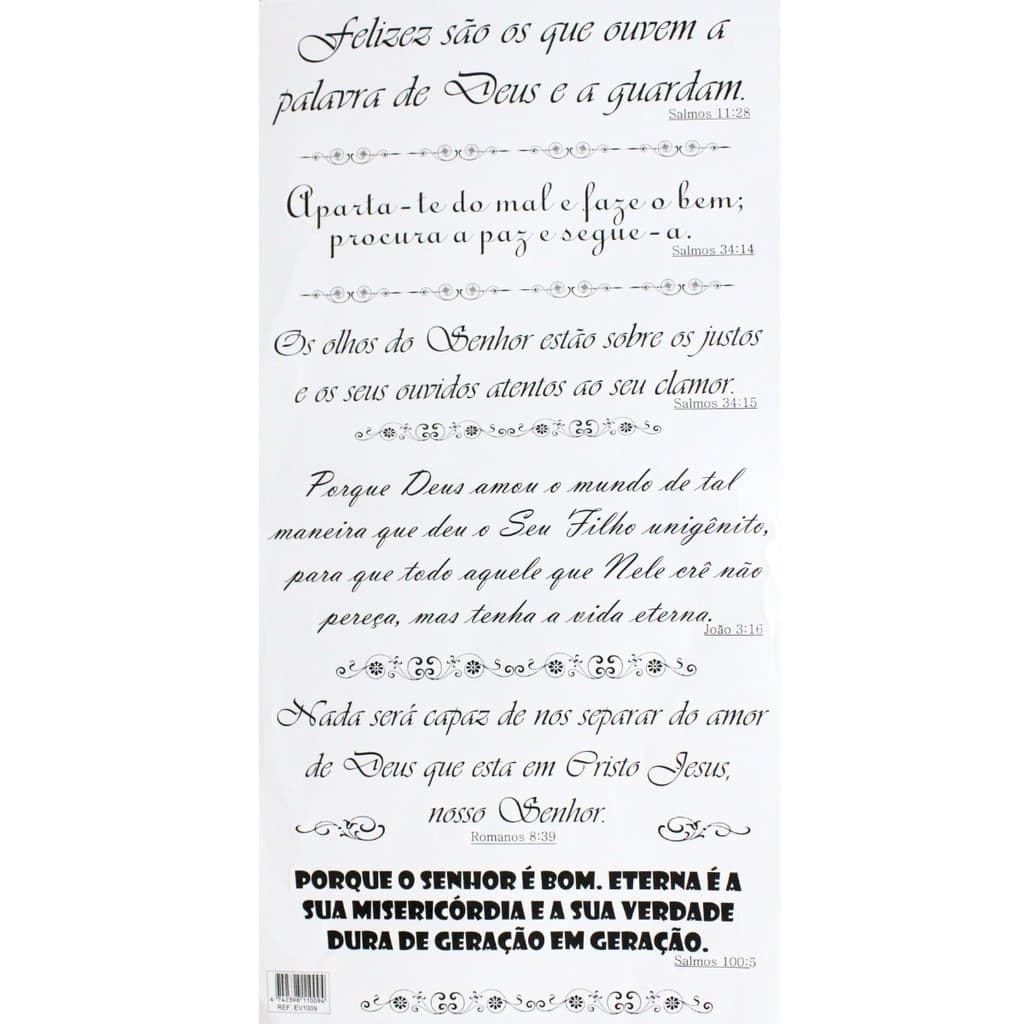 Felizez são os que ouvem a
palavra de Deus e a guardam.
Salmos 11:28
Aparta-te do mal e faze o bem;
procura a paz e segue-a.
Salmos 34:14
Os olhos do Senhor estão sobre os justos
e os seus ouvidos atentos ao seu clamor.
Salmos 34:15
Porque Deus amou o mundo de tal
maneira que deu o Seu Filho unigênito,
para que todo aquele que Nele crê não
pereça, mas tenha a vida eterna.
João 3:16
Nada será capaz de nos separar do amor
de Deus que esta em Cristo Jesus,
nosso Senhor.
Romanos 8:39
PORQUE O SENHOR É BOM. ETERNA É A
SUA MISERICÓRDIA E A SUA VERDADE
DURA DE GERAÇÃO EM GERAÇÃO.
Salmos 100:5
4 742398 110094
REF. EV1009